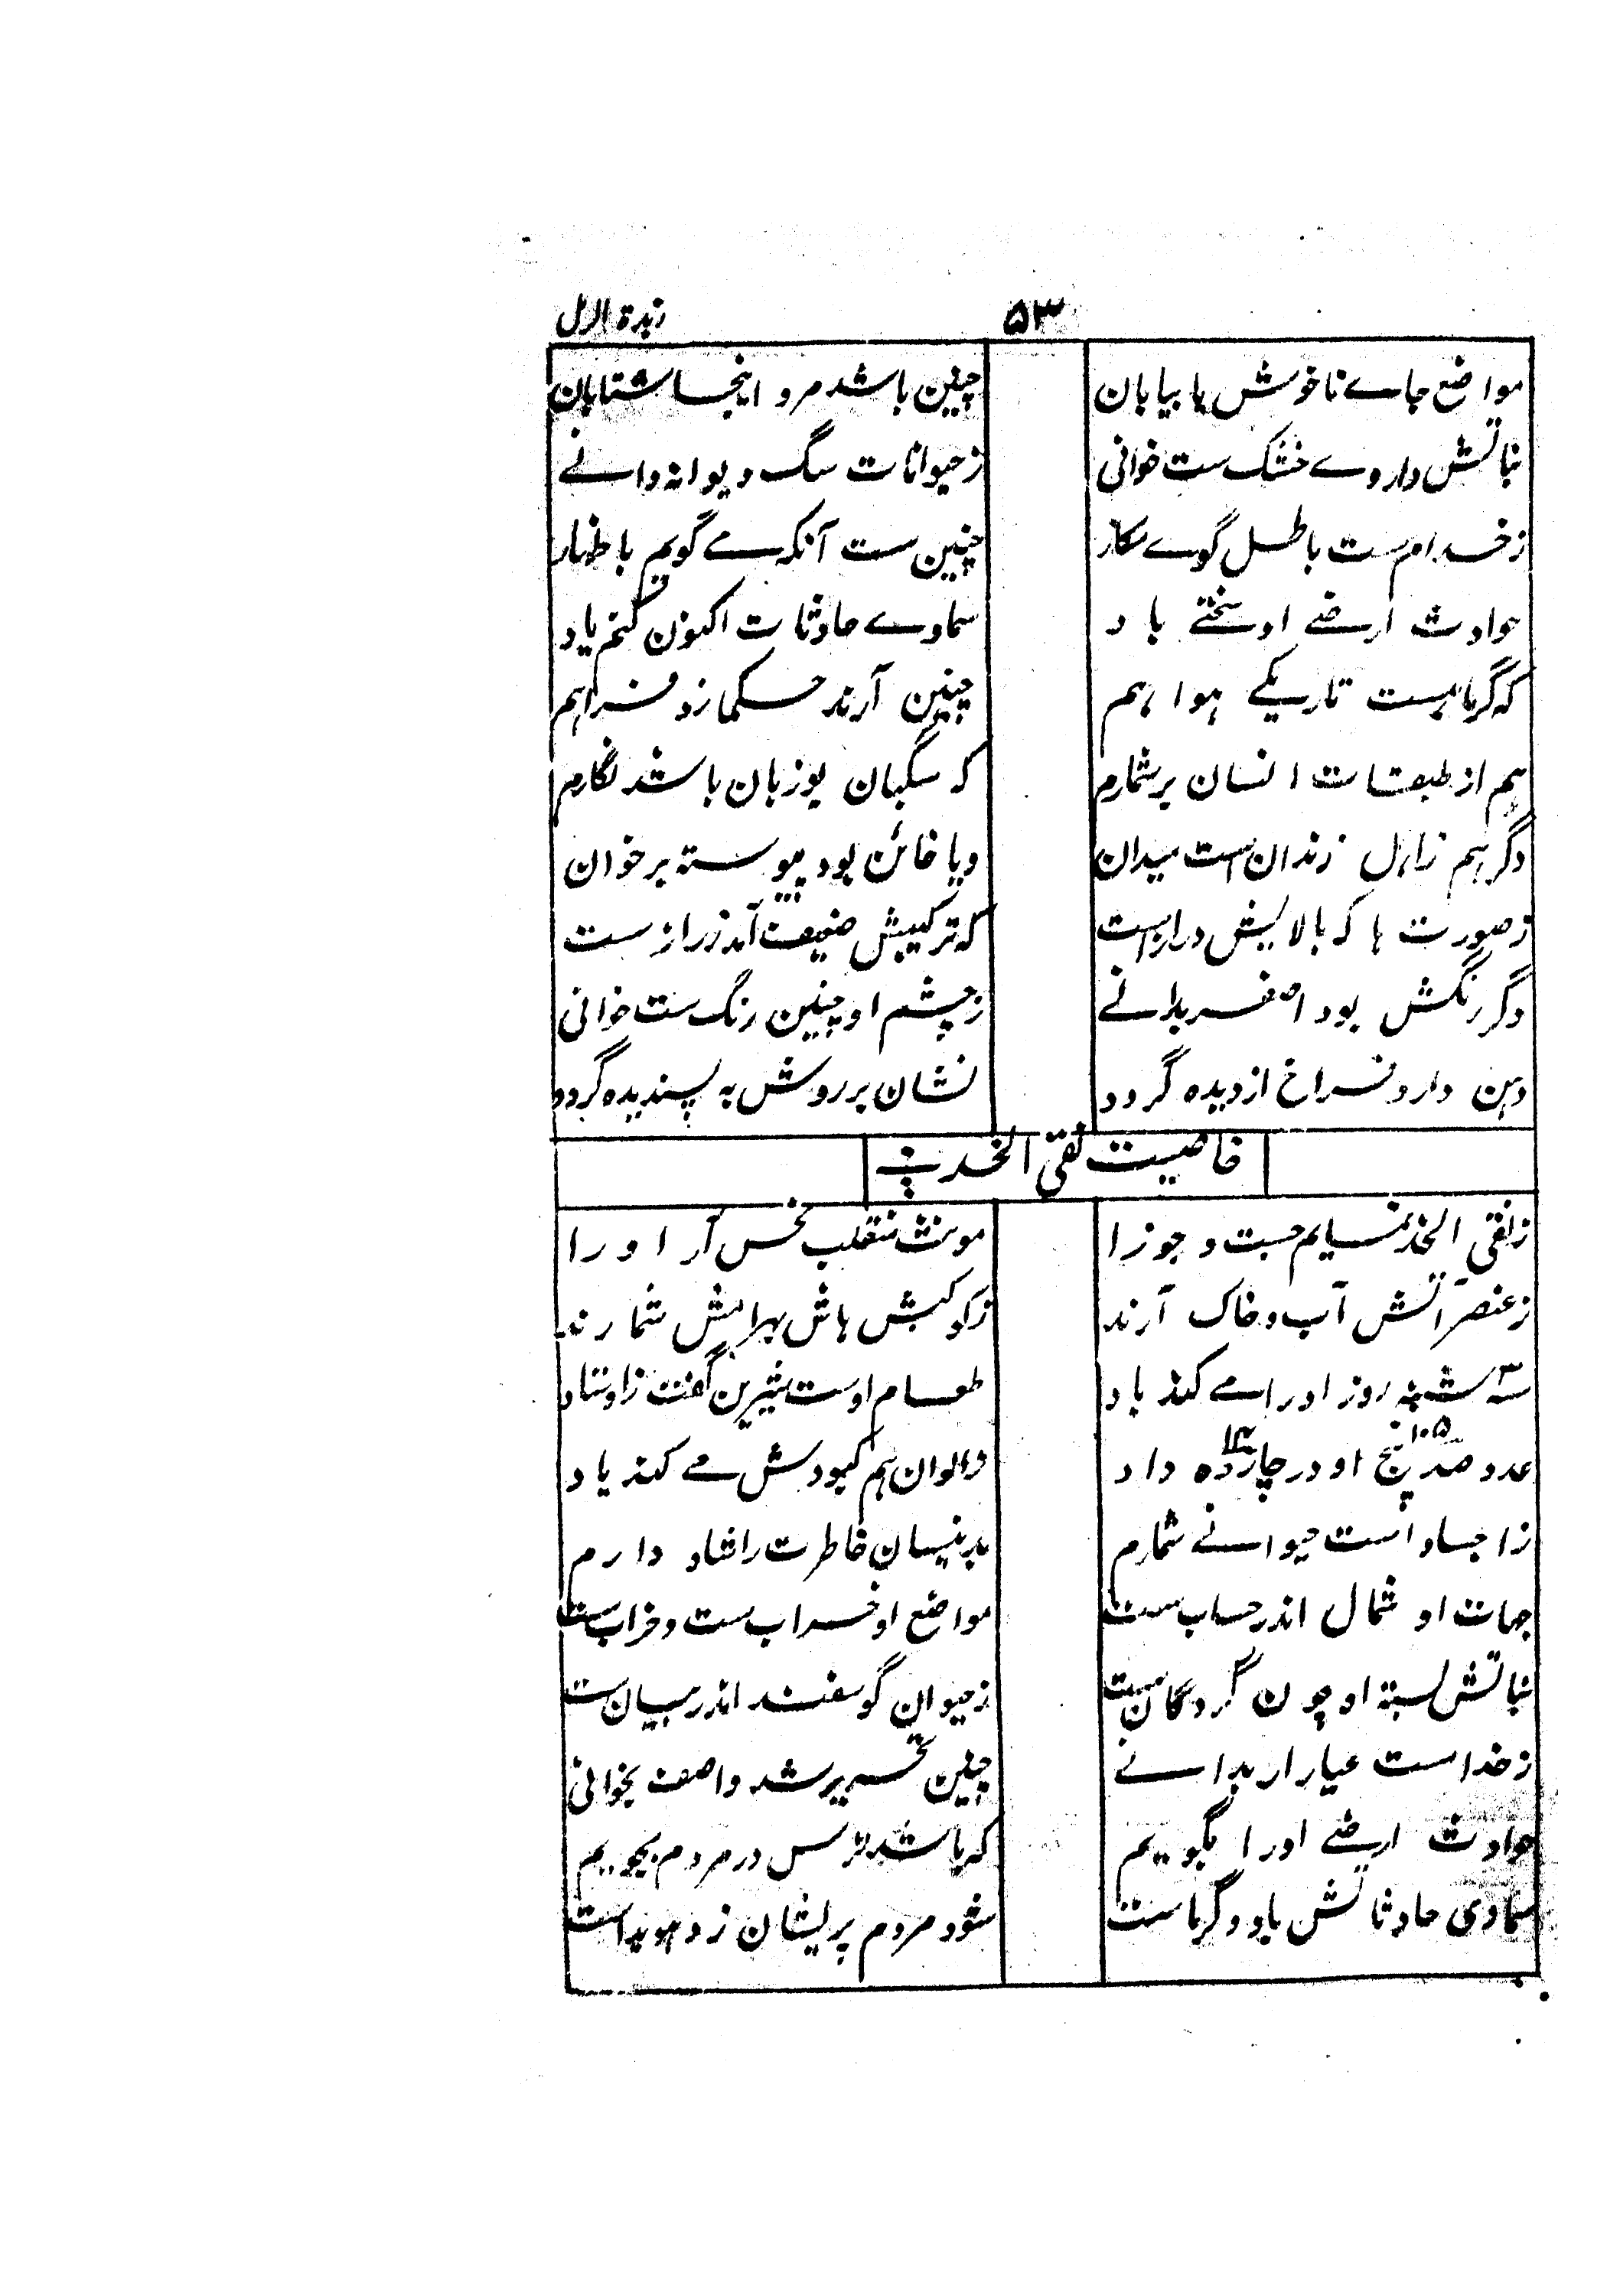 ۵۳ زبدة الرمل
مواضع جاے ناخوش یا بیابان چنین باشد مرو اینجا شتابان
نباتش داروے خشک ست خوانی زحیوانات سگ دیوانہ دانے
زخدام ست باطل گوے مکار چنین ست آنکہ مے گویم باظہار
حوادث ارضے او سختے باد سماوے حادثات اکنون کنم یاد
کہ گرما ہست تاریکے ہوا ہم چنین آرند حکما زو فراہم
ہم از طبقات انسان برشمارم کہ سگبان یوزبان باشد نگارم
دگر ہم زاہل زندان است میدان ویا خائن بود پیوستہ برخوان
زصورت ہا کہ بالایش درازست کہ ترکیبش ضعیف آمد زرازست
دگر رنگش بود اصفر بدانے زچشم او چنین رنگ ست خوانی
دہن دارو فراخ ازدیدہ گردد نشان بر روش بہ پسندیدہ گردد
خاصیت نقی الخد
زنقی الخد نمایم جست و جو زا مونث منقلب نحس آر او را
زعنصر آتش آب و خاک آرند زکوکبش ہاش بہرامش شمارند
سہ شنبہ روز اورا مے کند باد طعام اوست شیرین گفت زاوستاد
۱۰۵ ۱۴
عدد صد پنج او در چاردہ داد زالوان ہم کبودش مے کند یاد
زاجساد است حیوانے شمارم بدینسان خاطرت را شاد دارم
جہات او شمال اندر حساب ست مواضع او خراب ست و خراب ست
نباتش بستہ او چون گردگان ست زحیوان گوسفند اندر میان ست
زخدا ست عیار ار بدانے چنین تحریر شد واصف بخوانی
حوادث ارضے اورا بگویم کہ باشد ترس در مردم بجویم
سماوی حادثاتش باد و گرماست شود مردم پریشان زو ہویداست